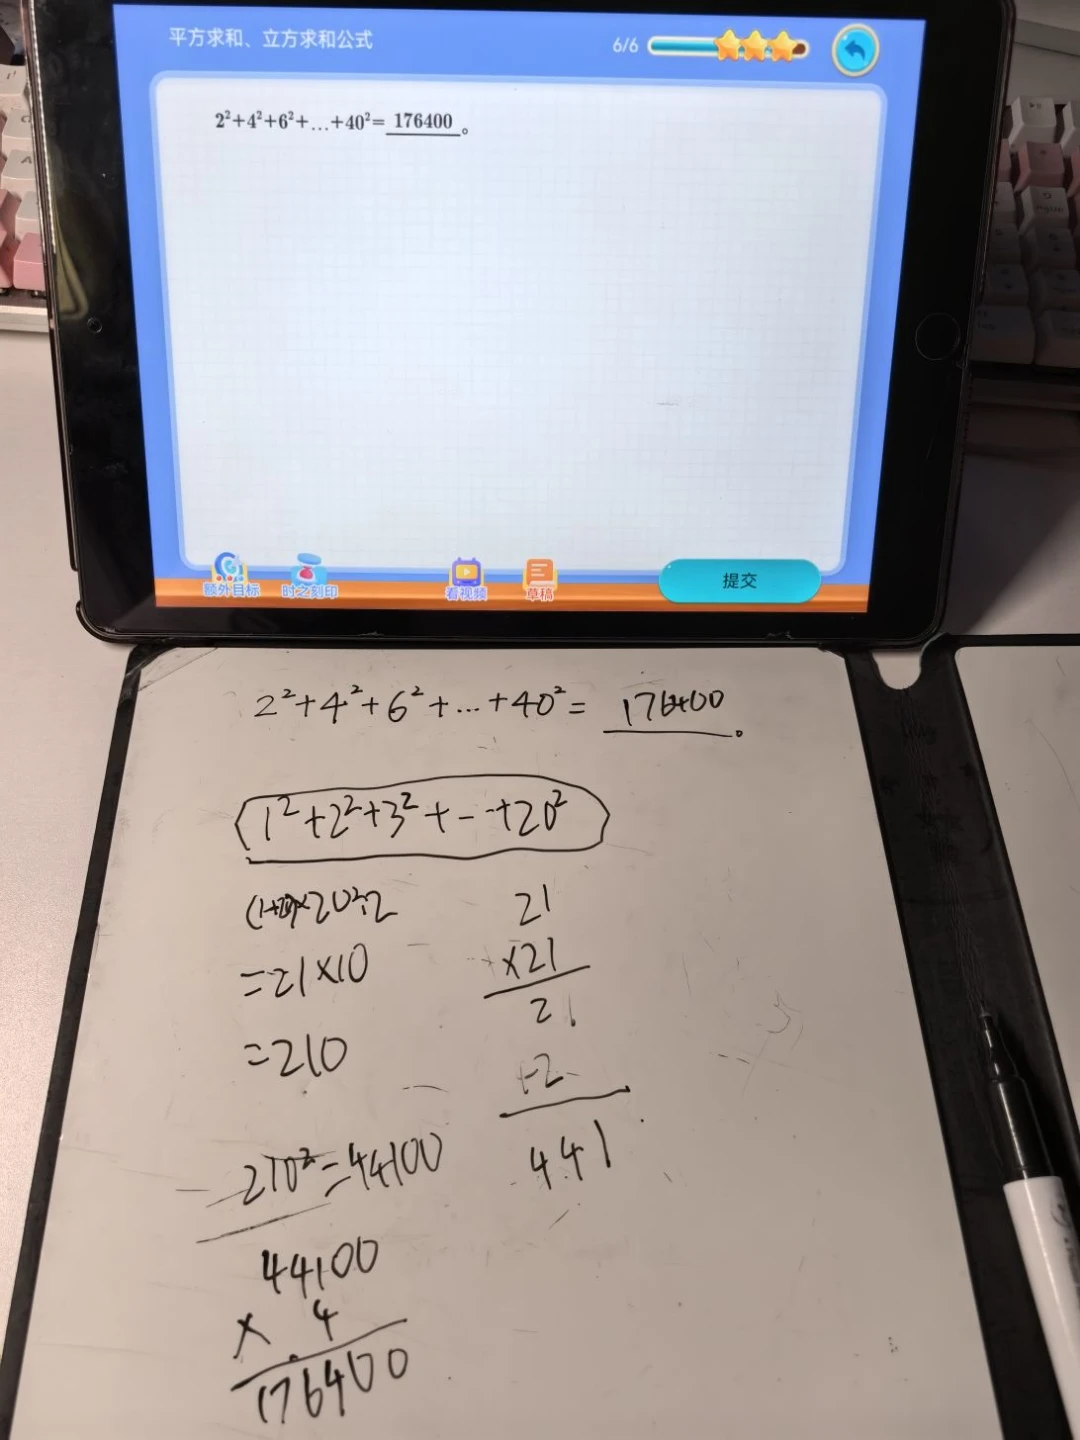 平方求和、立方求和公式
6/6
2²+4²+6²+…+40²=176400。
额外目标
时之刻印
看视频
草稿
提交
2²+4²+6²+…+40²=176400。
1²+2²+3²+…+20²
(1+20)×20÷2
=21×10
=210
210²=44100
44100
×4
176400
21
×21
21
42
441